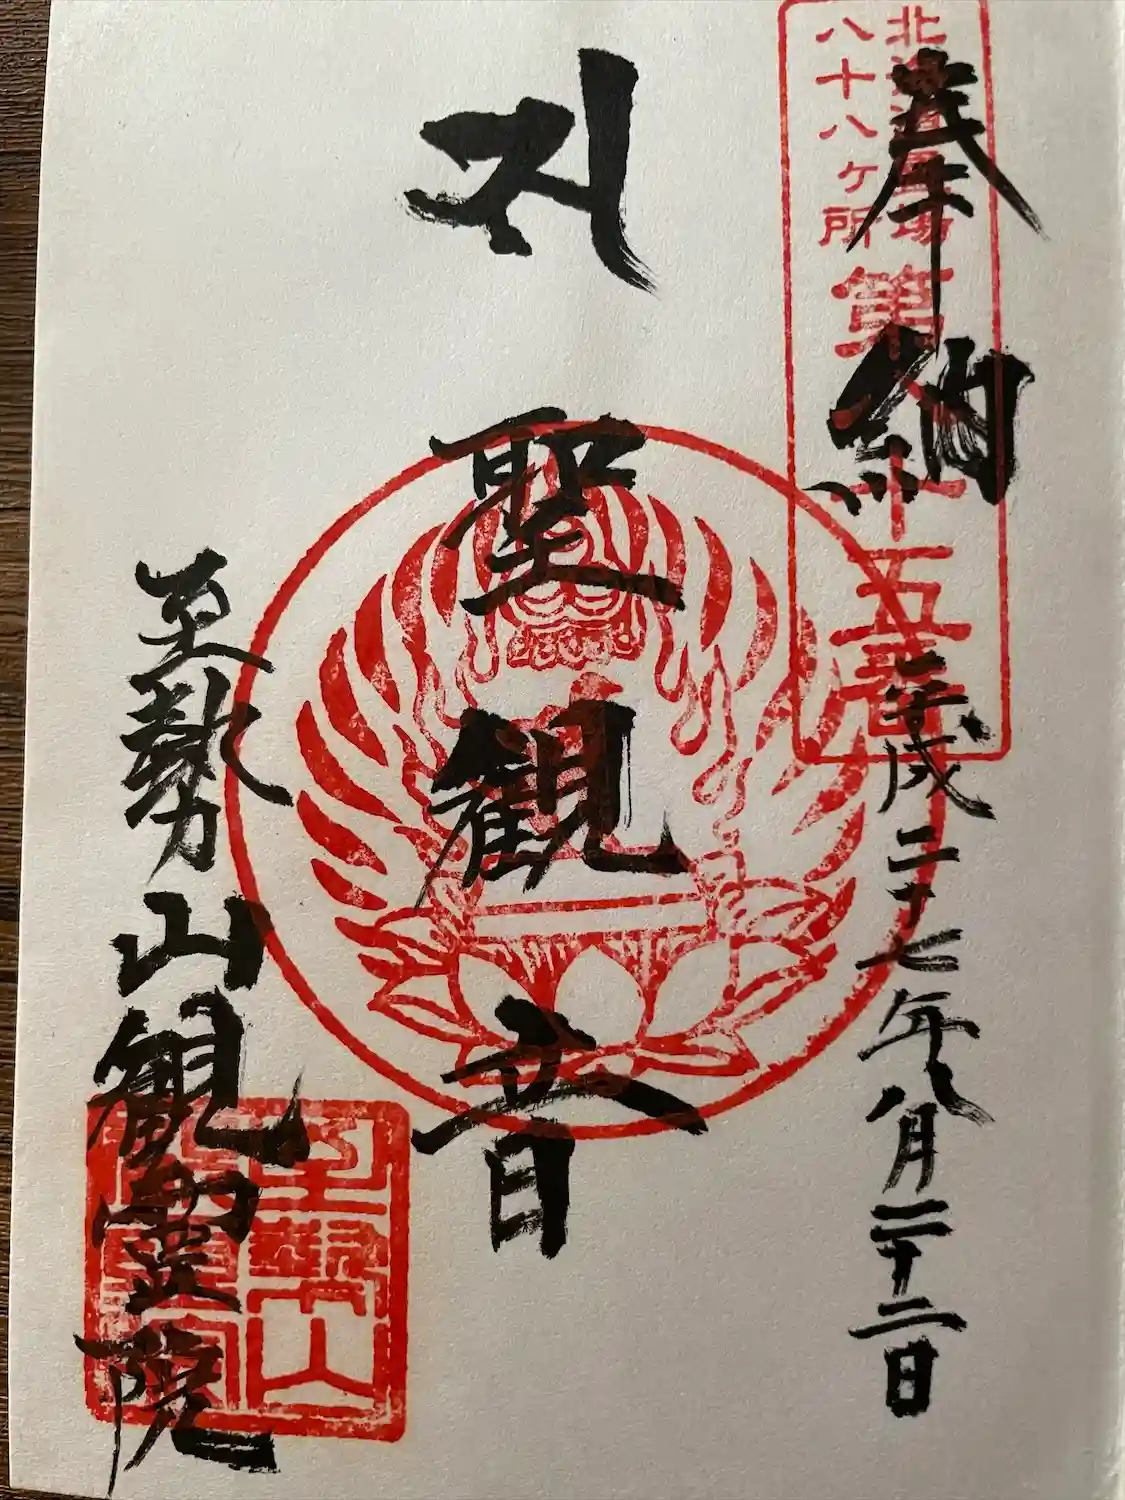 北海道霊場
八十八ヶ所
第 十五番
奉納
平成二十七年八月二十二日
𑖭
聖観音
至勢山観霊院
至勢山
観霊院